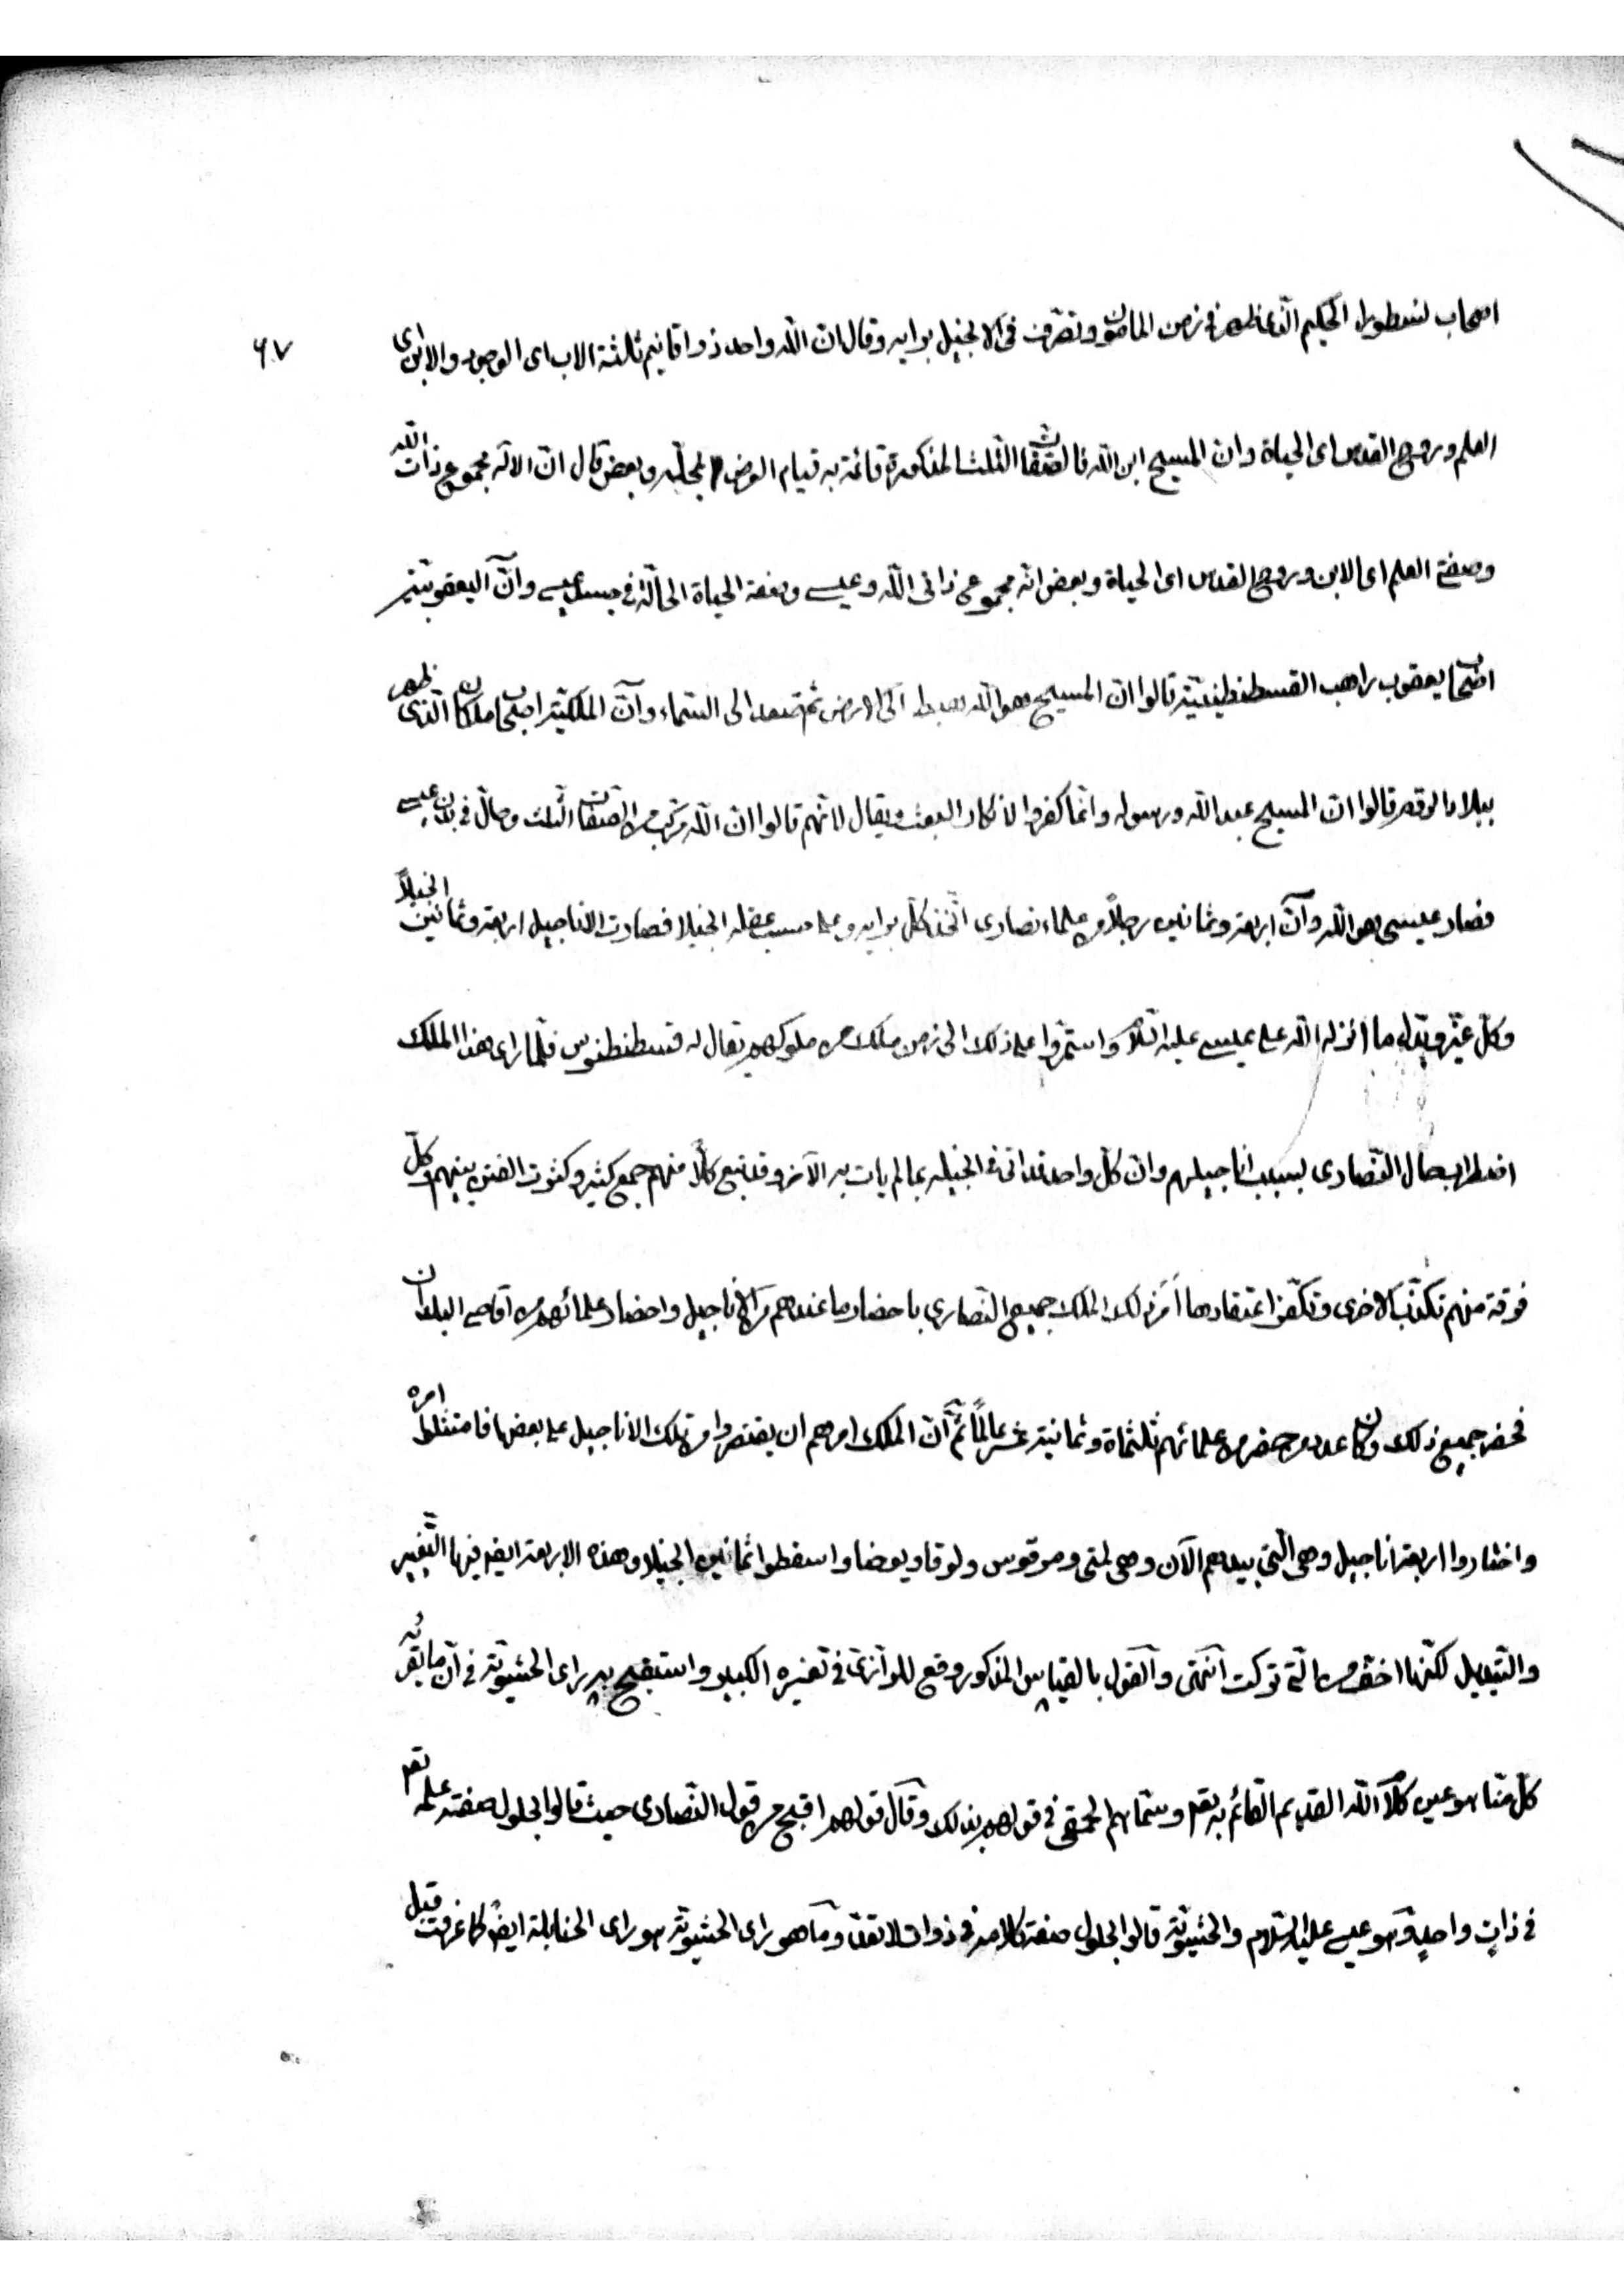 ۶۰۷
اصحاب نسطورا الحكيم الذى ظهر فى زمن المامون وتصرف فى الانجيل برايه وقال ان الله واحد ذو اقانيم ثلثة الاب اى الوجود والابن اى
العلم وروح القدس اى الحياة وان المسيح ابن الله فالصفات الثلث المذكورة قائمة به قيام العرض بمحله وبعض قال ان الاله مجموع ذات الله
وصفتى العلم اى الابن وروح القدس اى الحياة وبعض انه مجموع ذاتى الله وعيسى وصفة الحياة الحالّة فى جسد عيسى وانّ اليعقوبيّة
اصحاب يعقوب راهب القسطنطينيّة قالوا ان المسيح هو الله هبط الى الارض ثم صعد الى السّماء وانّ الملكيّة اصحاب ملكان الذى ظهر
ببلاد الروم قالوا انّ المسيح عبد الله ورسوله وانّما كفروا لانكار البعث ويقال لانّهم قالوا ان الله مركّب من الصفات الثلث وحالّ فى بدن عيسى
فصار عيسى هو الله وانّ اربعة وثمانين رجلاً من علماء نصارى اتّخذ كلّ برايه وعلى حسب عقله انجيلا فصارت الاناجيل اربعة وثمانين انجيلاً
وكلّ غيّر وبدّل ما انزله الله على عيسى عليه السّلام واستمرّوا على ذلك الى زمن ملك من ملوكهم يقال له قسطنطنوس فلمّا راى هذا الملك
اضطراب حال النّصارى بسبب اناجيلهم وانّ كلّ واحد قد اتى فى انجيله بما لم يات به الآخر وقد تبع كلّا منهم جمع كثير وكثرت الفتن بينهم وكلّ
فرقة منهم تكذّب الاخرى وتكفّر اعتقادها امر ذلك الملك جميع النّصارى باحضار ما عندهم من الاناجيل واحضار علمائهم من اقاصى البلدان
فحضر جميع ذلك وكان عدد من حضر من علمائهم ثلثماة وثمانية عشر عالمًا ثمّ انّ الملك امرهم ان يقتصروا من تلك الاناجيل على بعضها فامتثلوا امره
واختاروا اربعة اناجيل وهى الّتى بيدهم الآن وهى لمتى ومرقوس ولوقا ويوحنا واسقطوا ثمانين انجيلا وهذه الاربعة ايضا فيها التّغيير
والتبديل لكنّها اخفّ من الّتى تركت انتهى والقول بالقياس المذكور وقع للرّازى فى تفسيره الكبير واستقبح به راى الحشويّة فى انّ ما يقرئه
كلّ منّا هو عين كلام الله القديم القائم به تع‍ وسمّاهم الحمقى فى قولهم بذلك وقال قولهم اقبح من قول النّصارى حيث قالوا بحلول صفة علمه تع‍
فى ذاتٍ واحدٍ وهو عيسى عليه السّلام والحشويّة قالوا بحلول صفة كلامه فى ذوات لا تعدّ وما هو راى الحشويّة هو راى الحنابلة ايضً كما عرفت قبل